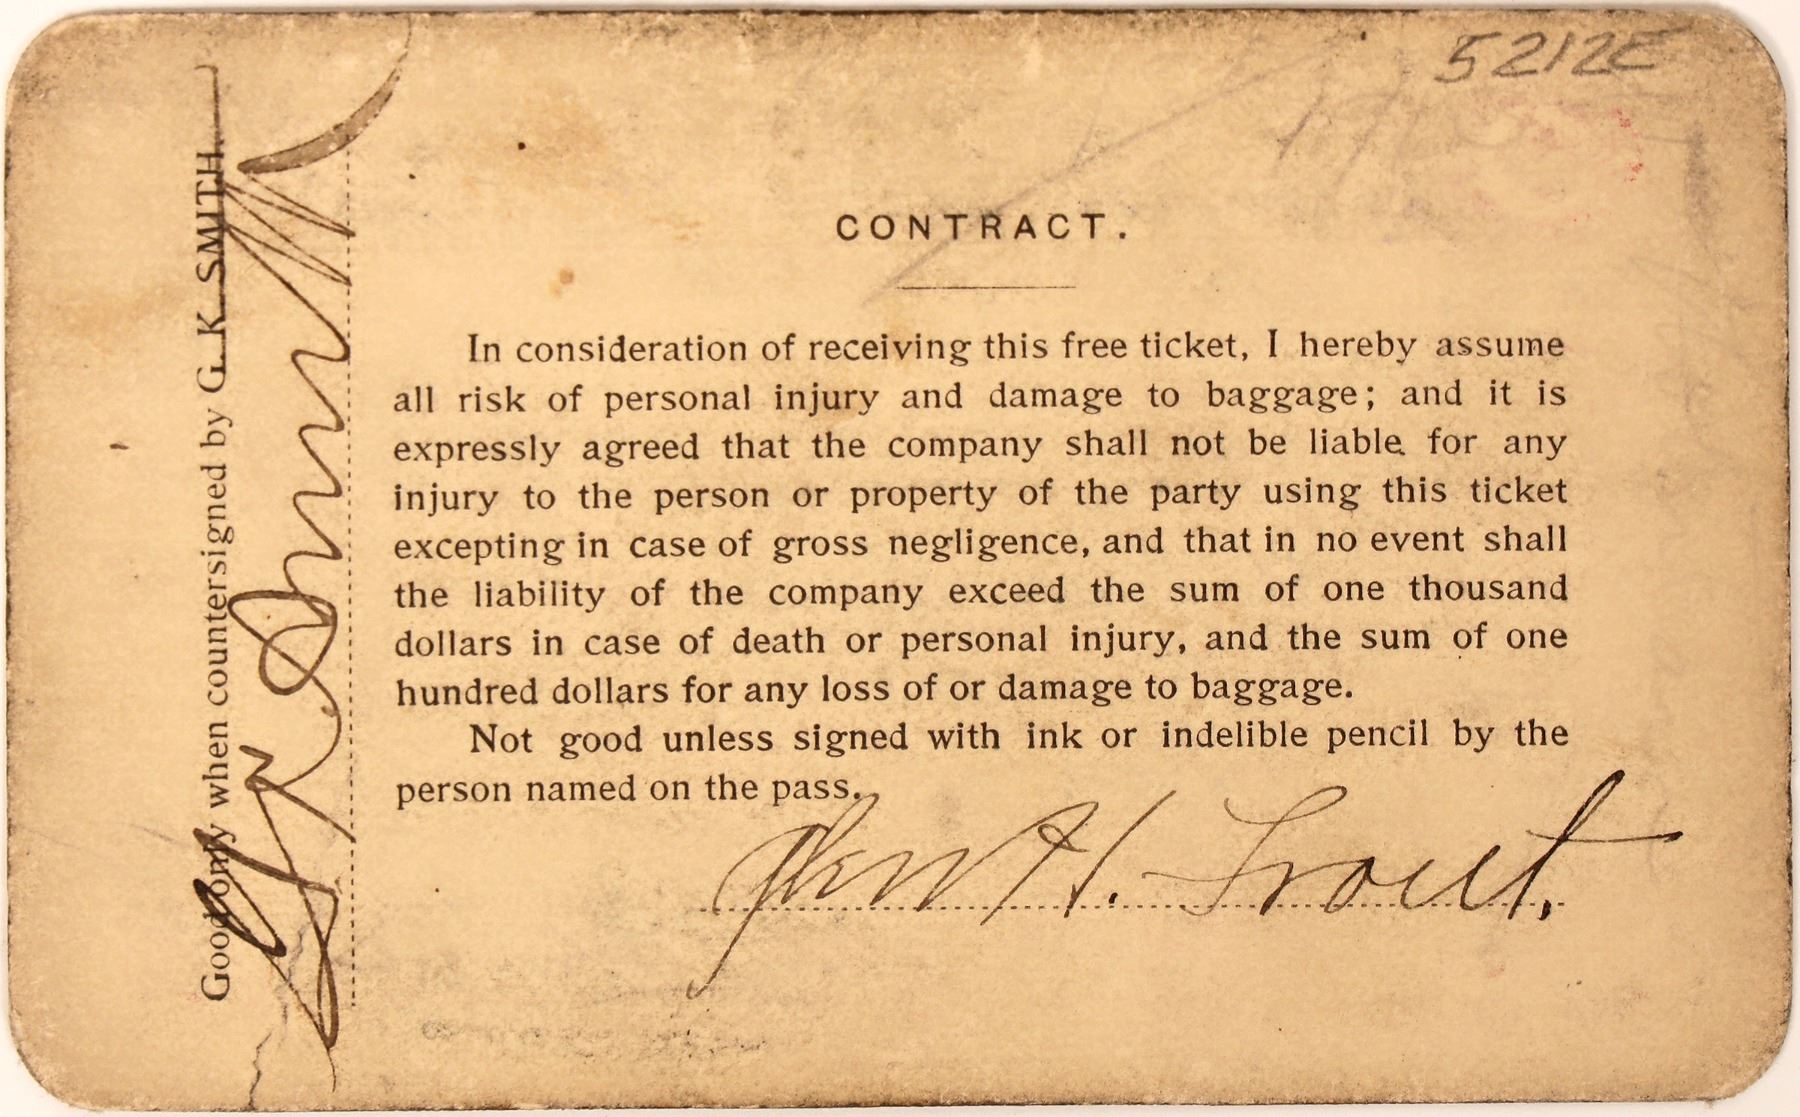 5212E
CONTRACT.
In consideration of receiving this free ticket, I hereby assume
all risk of personal injury and damage to baggage; and it is
expressly agreed that the company shall not be liable for any
injury to the person or property of the party using this ticket
excepting in case of gross negligence, and that in no event shall
the liability of the company exceed the sum of one thousand
dollars in case of death or personal injury, and the sum of one
hundred dollars for any loss of or damage to baggage.
Not good unless signed with ink or indelible pencil by the
person named on the pass.
H. Trout.
Good only when countersigned by G. K. SMITH.
G K Smith